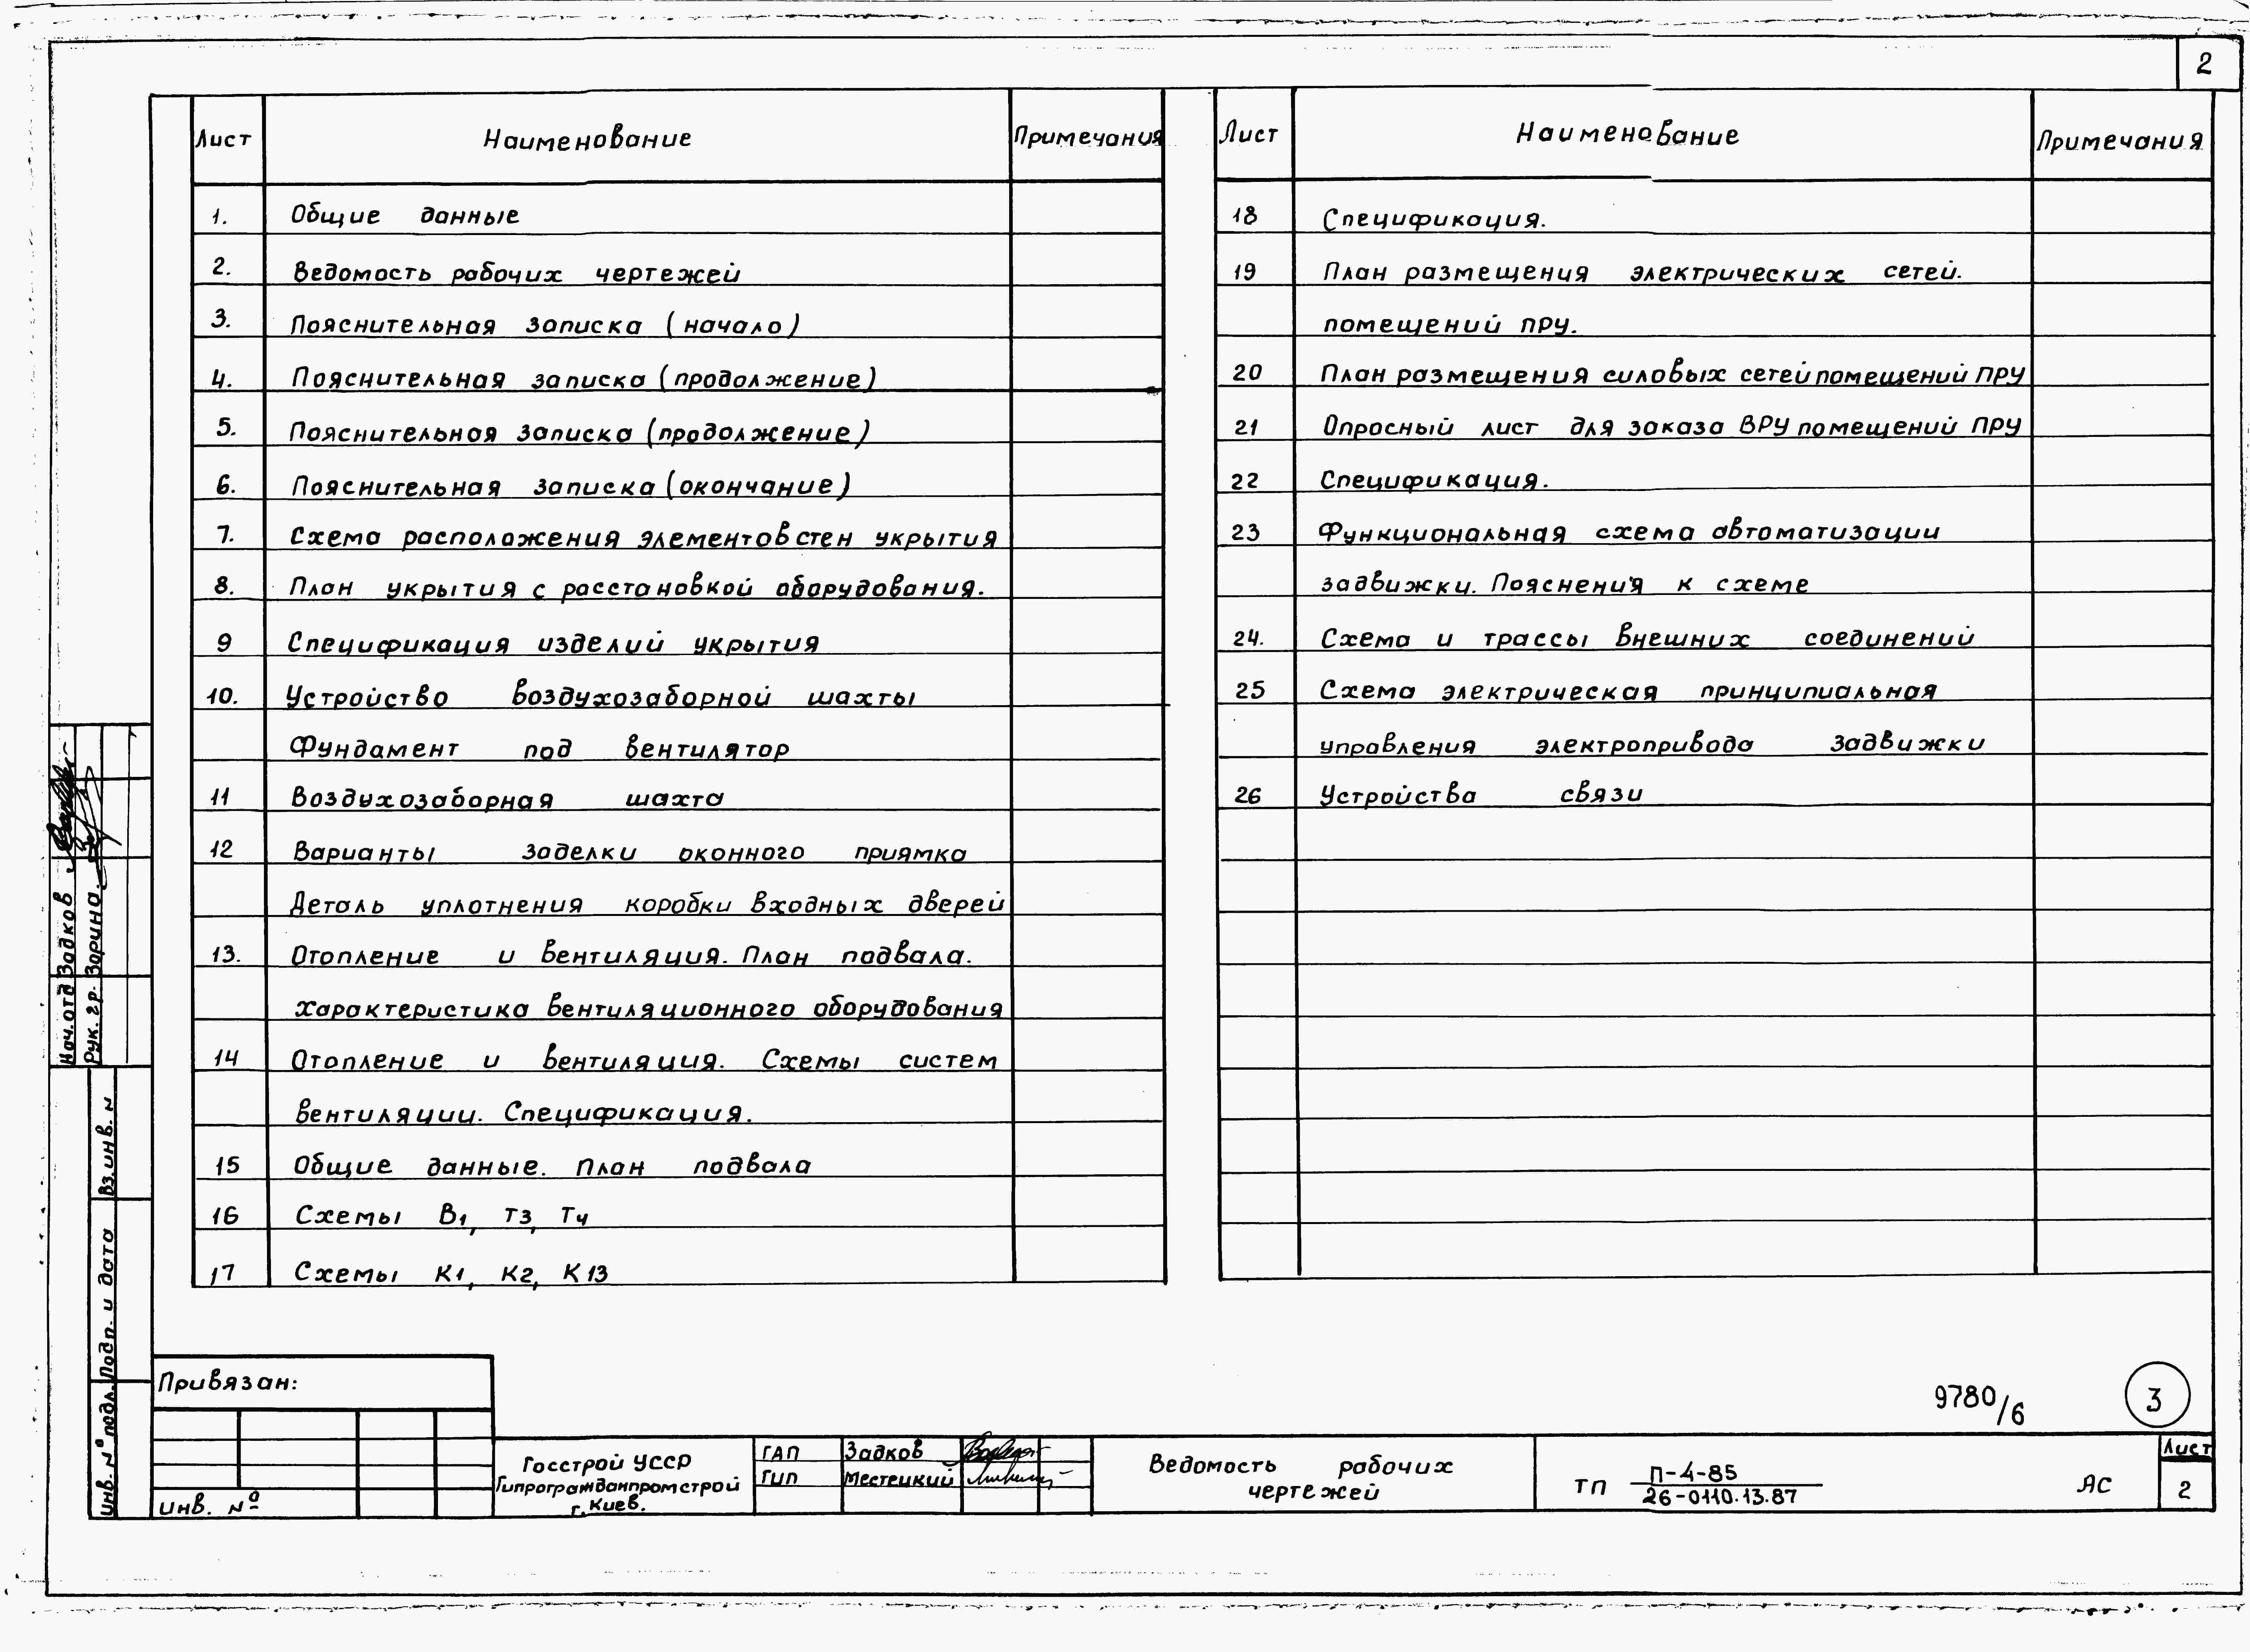 2
Лист Наименование Примечания
1. Общие данные
2. Ведомость рабочих чертежей
3. Пояснительная записка (начало)
4. Пояснительная записка (продолжение)
5. Пояснительная записка (продолжение)
6. Пояснительная записка (окончание)
7. Схема расположения элементов стен укрытия
8. План укрытия с расстановкой оборудования.
9 Спецификация изделий укрытия
10. Устройство воздухозаборной шахты
Фундамент под вентилятор
11 Воздухозаборная шахта
12 Варианты заделки оконного приямка
Деталь уплотнения коробки входных дверей
13. Отопление и вентиляция. План подвала.
Характеристика вентиляционного оборудования
14 Отопление и вентиляция. Схемы систем
вентиляции. Спецификация.
15 Общие данные. План подвала
16 Схемы В1, Т3, Т4
17 Схемы К1, К2, К13
Лист Наименование Примечания
18 Спецификация.
19 План размещения электрических сетей.
помещений ПРУ.
20 План размещения силовых сетей помещений ПРУ
21 Опросный лист для заказа ВРУ помещений ПРУ
22 Спецификация.
23 Функциональная схема автоматизации
задвижки. Пояснения к схеме
24. Схема и трассы внешних соединений
25 Схема электрическая принципиальная
управления электропривода задвижки
26 Устройства связи
Нач.отд Задков
Рук. гр. Зорина
Вз.инв. N
Подп. и дата
Инв. Nº подл.
Привязан:
Инв. Nº
Госстрой УССР
Гипрогражданпромстрой
г. Киев.
ГАП Задков
ГИП Местецкий
Ведомость рабочих
чертежей
9780/6
3
ТП П-4-85
26-0110.13.87
АС
Лист
2